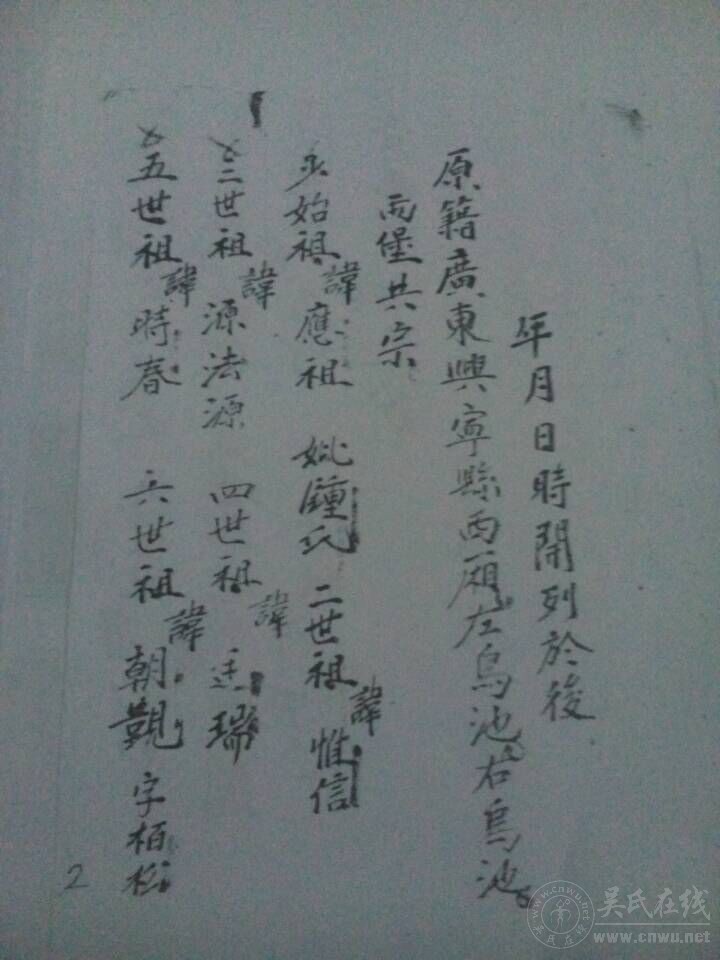 年月日時開列於後
原籍廣東興寧縣西廂左烏池右烏池
兩堡共宗
始祖諱應祖 妣鍾氏 二世祖諱惟信
三世祖諱源法源 四世祖諱廷瑞
五世祖諱時春 六世祖諱朝觀 字栢松
2
www.cnwu.net
吴氏在线
吴氏在线
www.cnwu.net